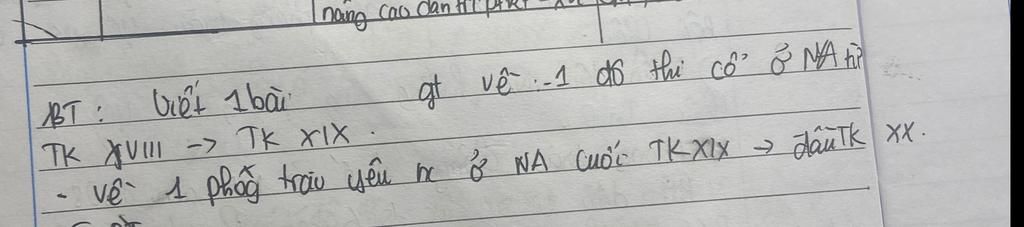 nâng cao dân trí ptkt - xh
BT: Viết 1 bài gt về :-1 đô thi cổ ở NA từ
TK XVIII -> TK XIX.
- Về 1 phog trào yêu nc ở NA cuối TK XIX -> đầu TK XX.